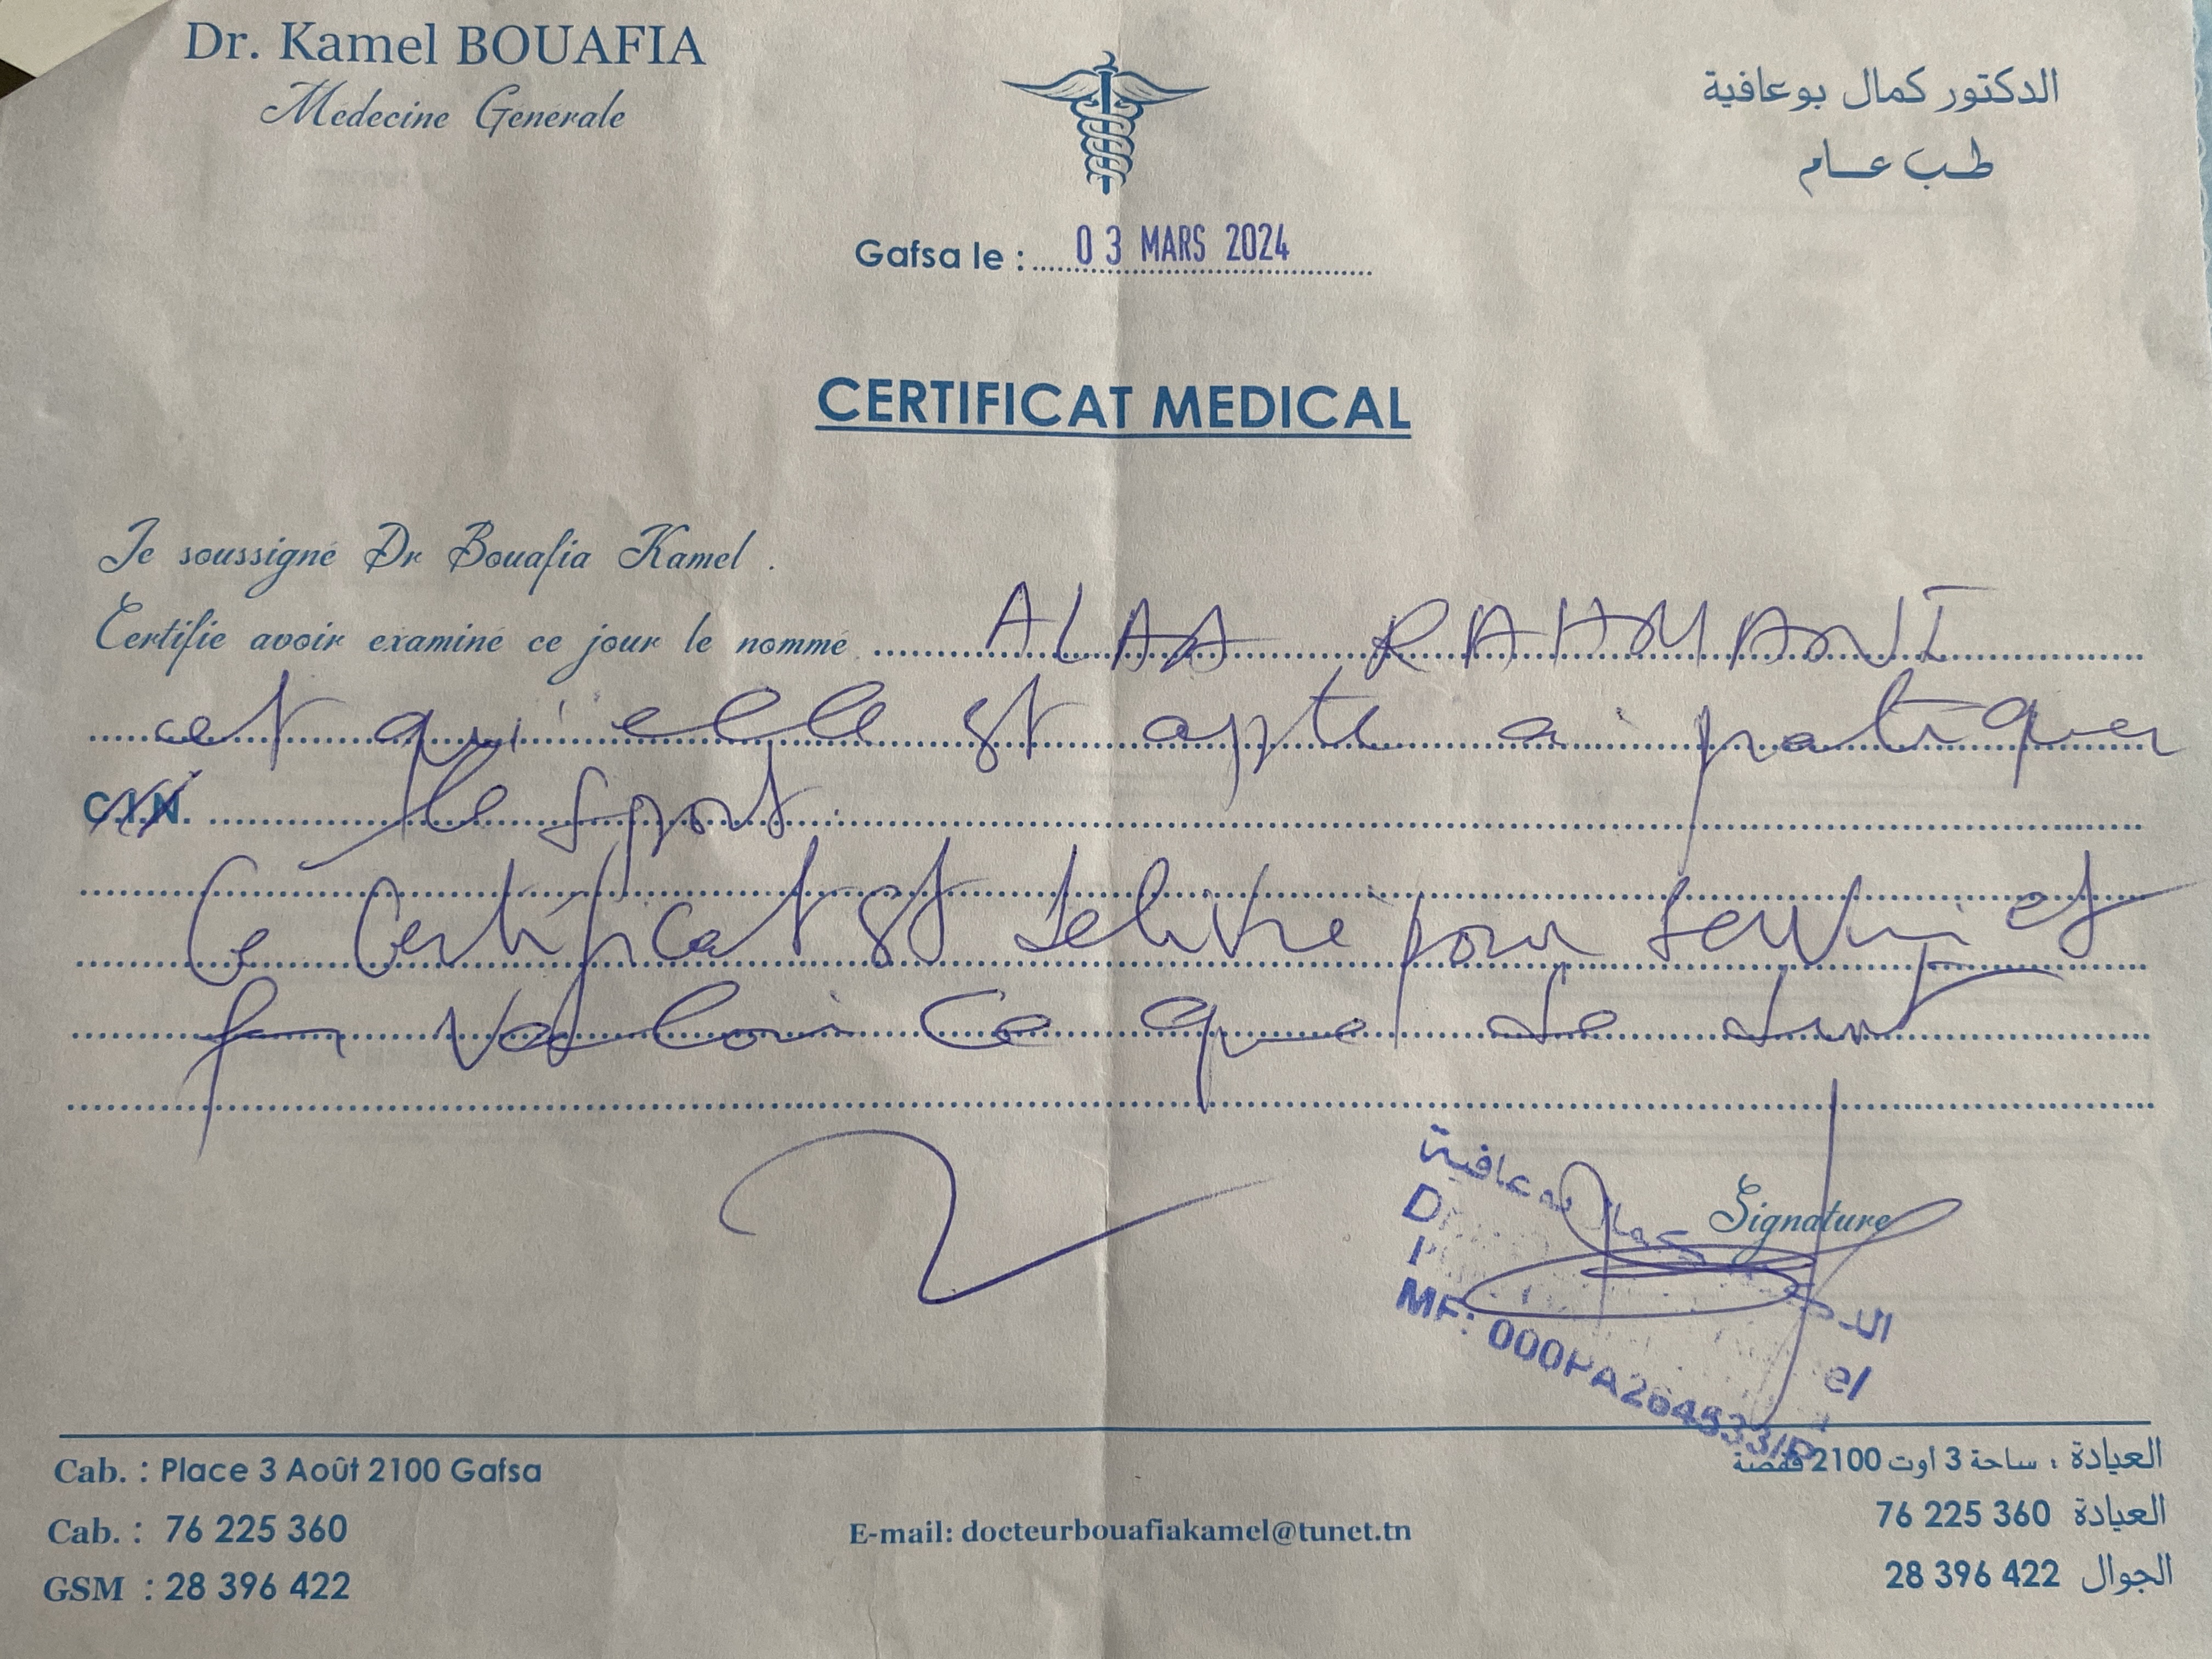 Dr. Kamel BOUAFIA
Médecine Générale
الدكتور كمال بوعافية
طب عام
Gafsa le : 03 MARS 2024
CERTIFICAT MEDICAL
Je soussigné Dr Bouafia Kamel .
Certifie avoir examiné ce jour le nommé ALAA RAHMANI
et qu'elle est apte à pratiquer
C.I.N. le sport.
Ce certificat est délivré pour servir et
valoir ce que de droit
بوعافية
Signature
MF: 000PA264533/P
Cab. : Place 3 Août 2100 Gafsa
العيادة : ساحة 3 اوت 2100 قفصة
Cab. : 76 225 360
E-mail: docteurbouafiakamel@tunet.tn
العيادة 76 225 360
GSM : 28 396 422
الجوال 28 396 422